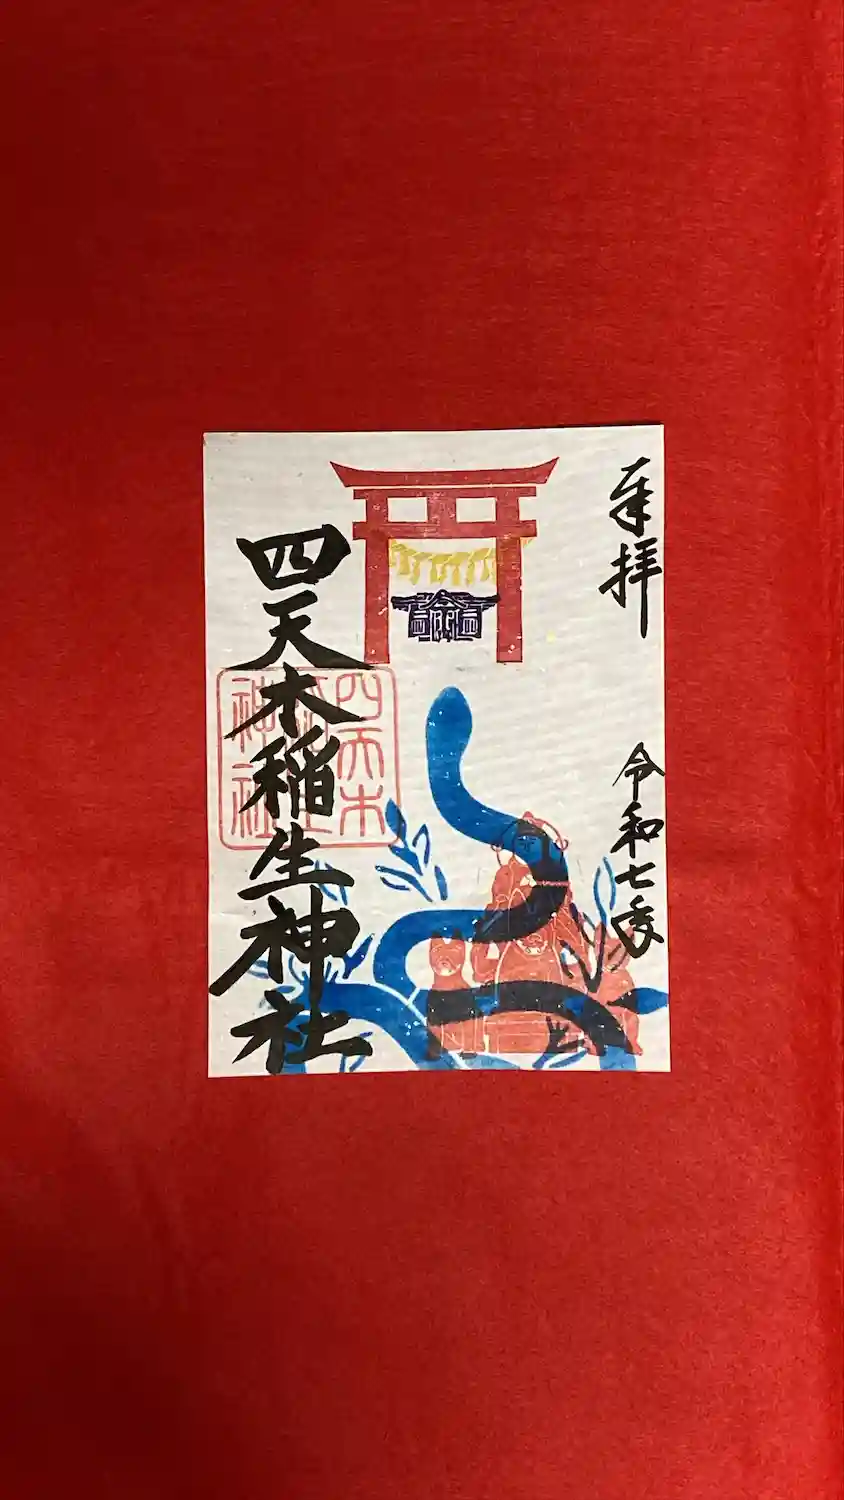 奉拝
令和七年
四天木稲生神社
四天木
稲生
神社